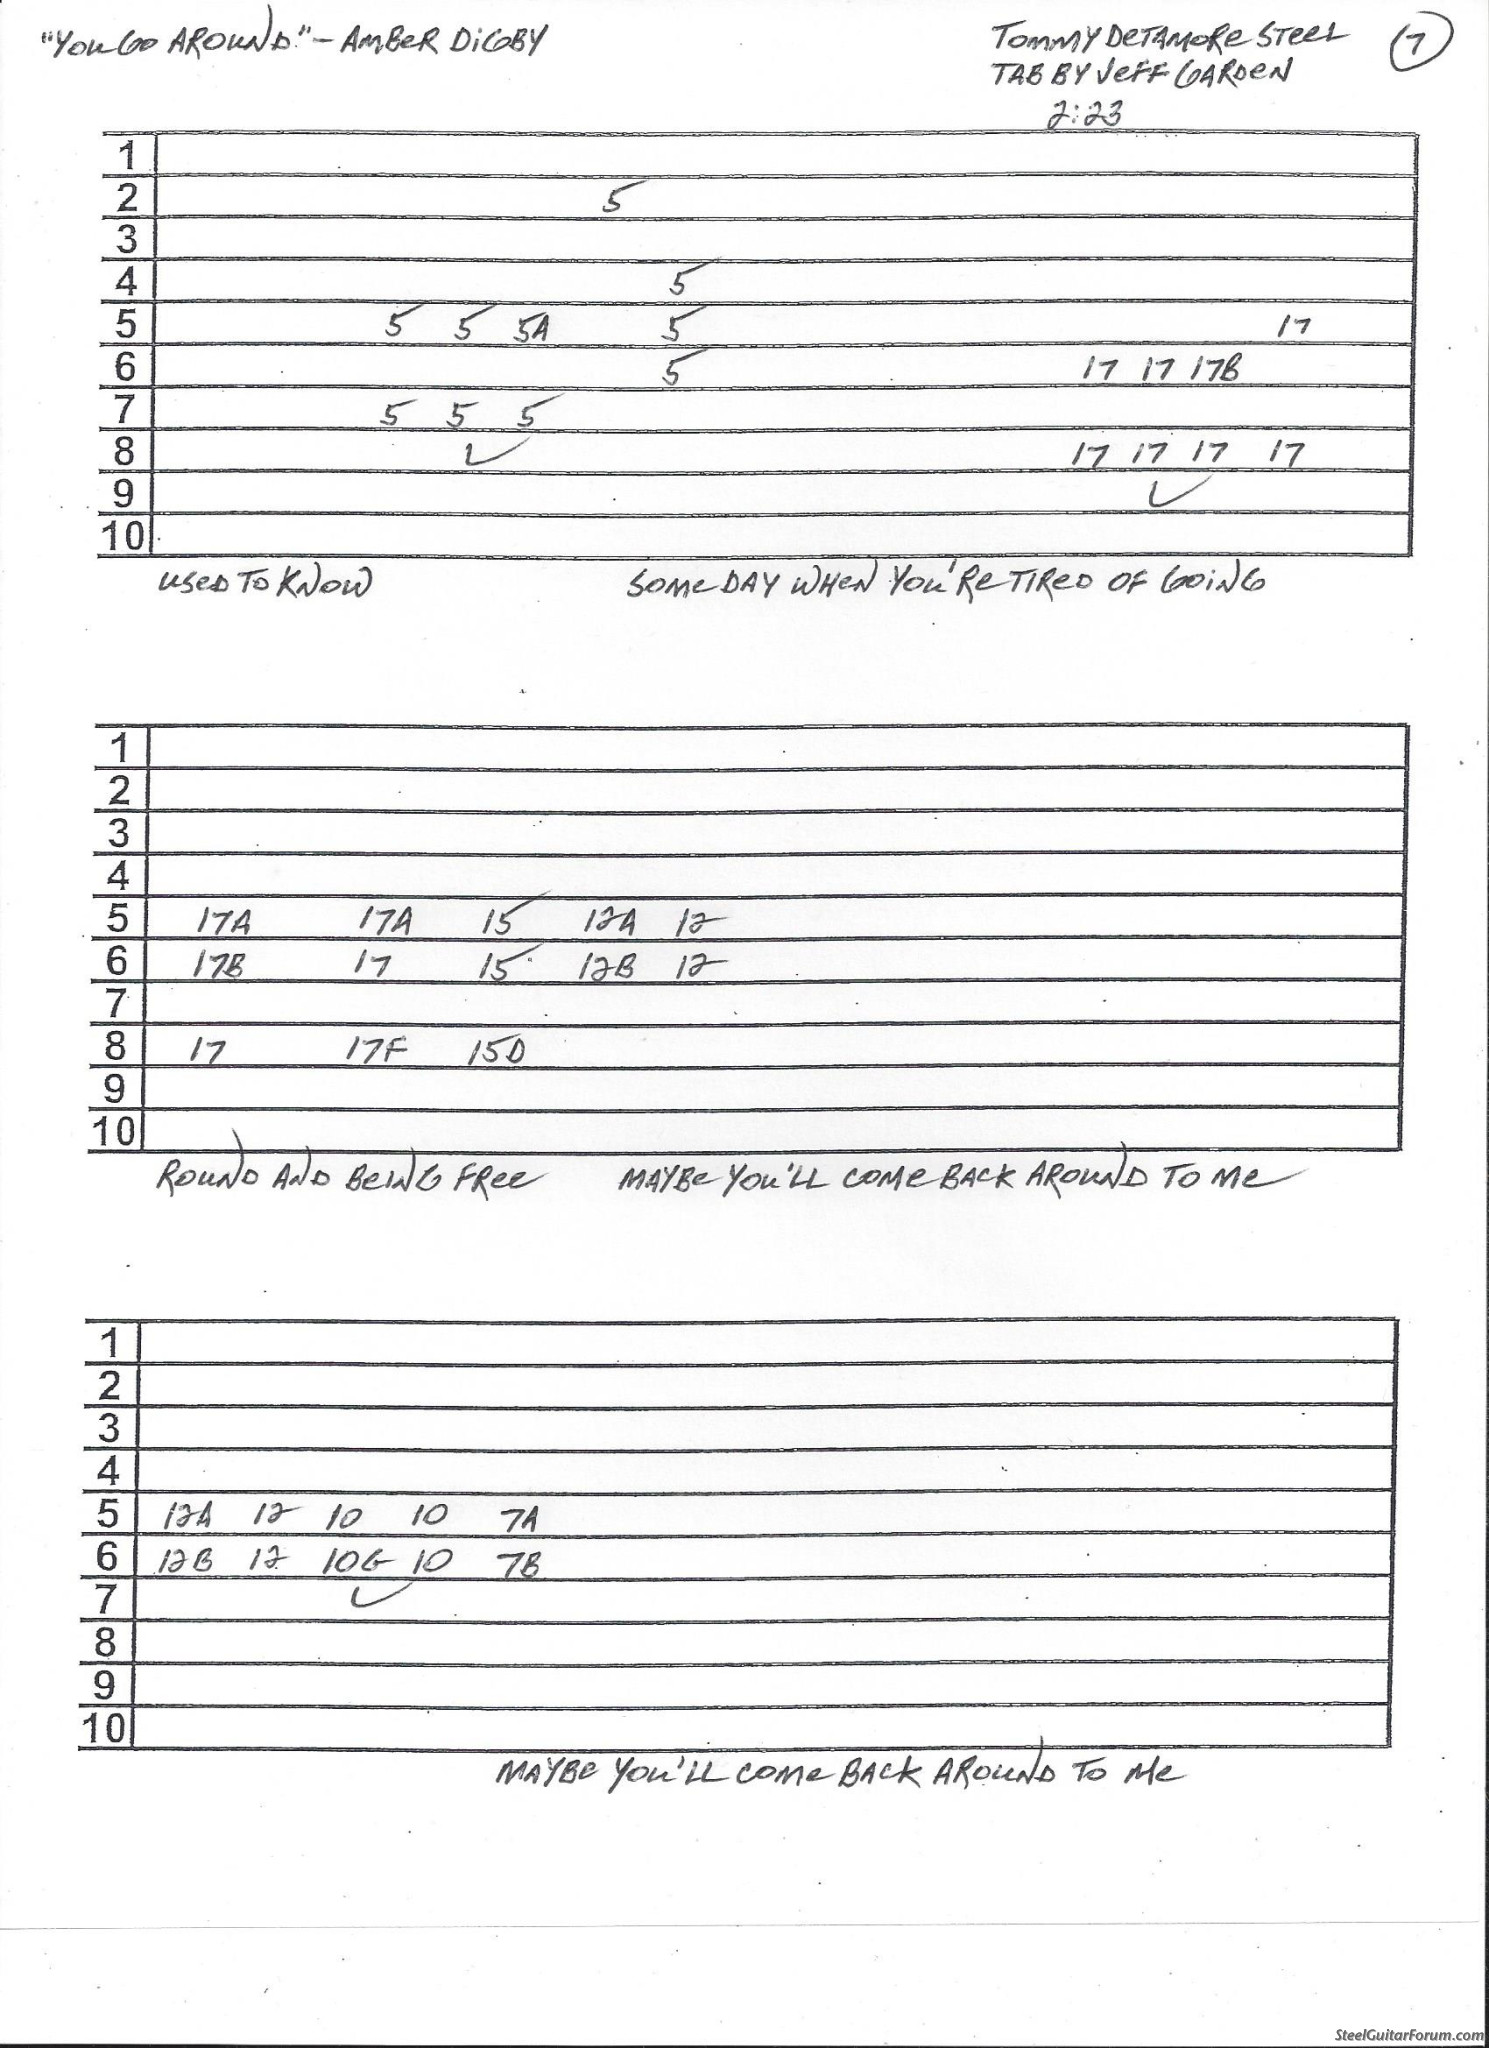 "YOU GO AROUND" - AMBER DIGBY
TOMMY DETAMORE STEEL
TAB BY JEFF GARDEN
2:23
7
1
2 5
3
4 5
5 5 5 5A 5 17
6 5 17 17 17B
7 5 5 5
8 17 17 17 17
9
10
USED TO KNOW SOMEDAY WHEN YOU'RE TIRED OF GOING
1
2
3
4
5 17A 17A 15 12A 12
6 17B 17 15 12B 12
7
8 17 17F 15D
9
10
ROUND AND BEING FREE MAYBE YOU'LL COME BACK AROUND TO ME
1
2
3
4
5 12A 12 10 10 7A
6 12B 12 10G 10 7B
7
8
9
10
MAYBE YOU'LL COME BACK AROUND TO ME
SteelGuitarForum.com